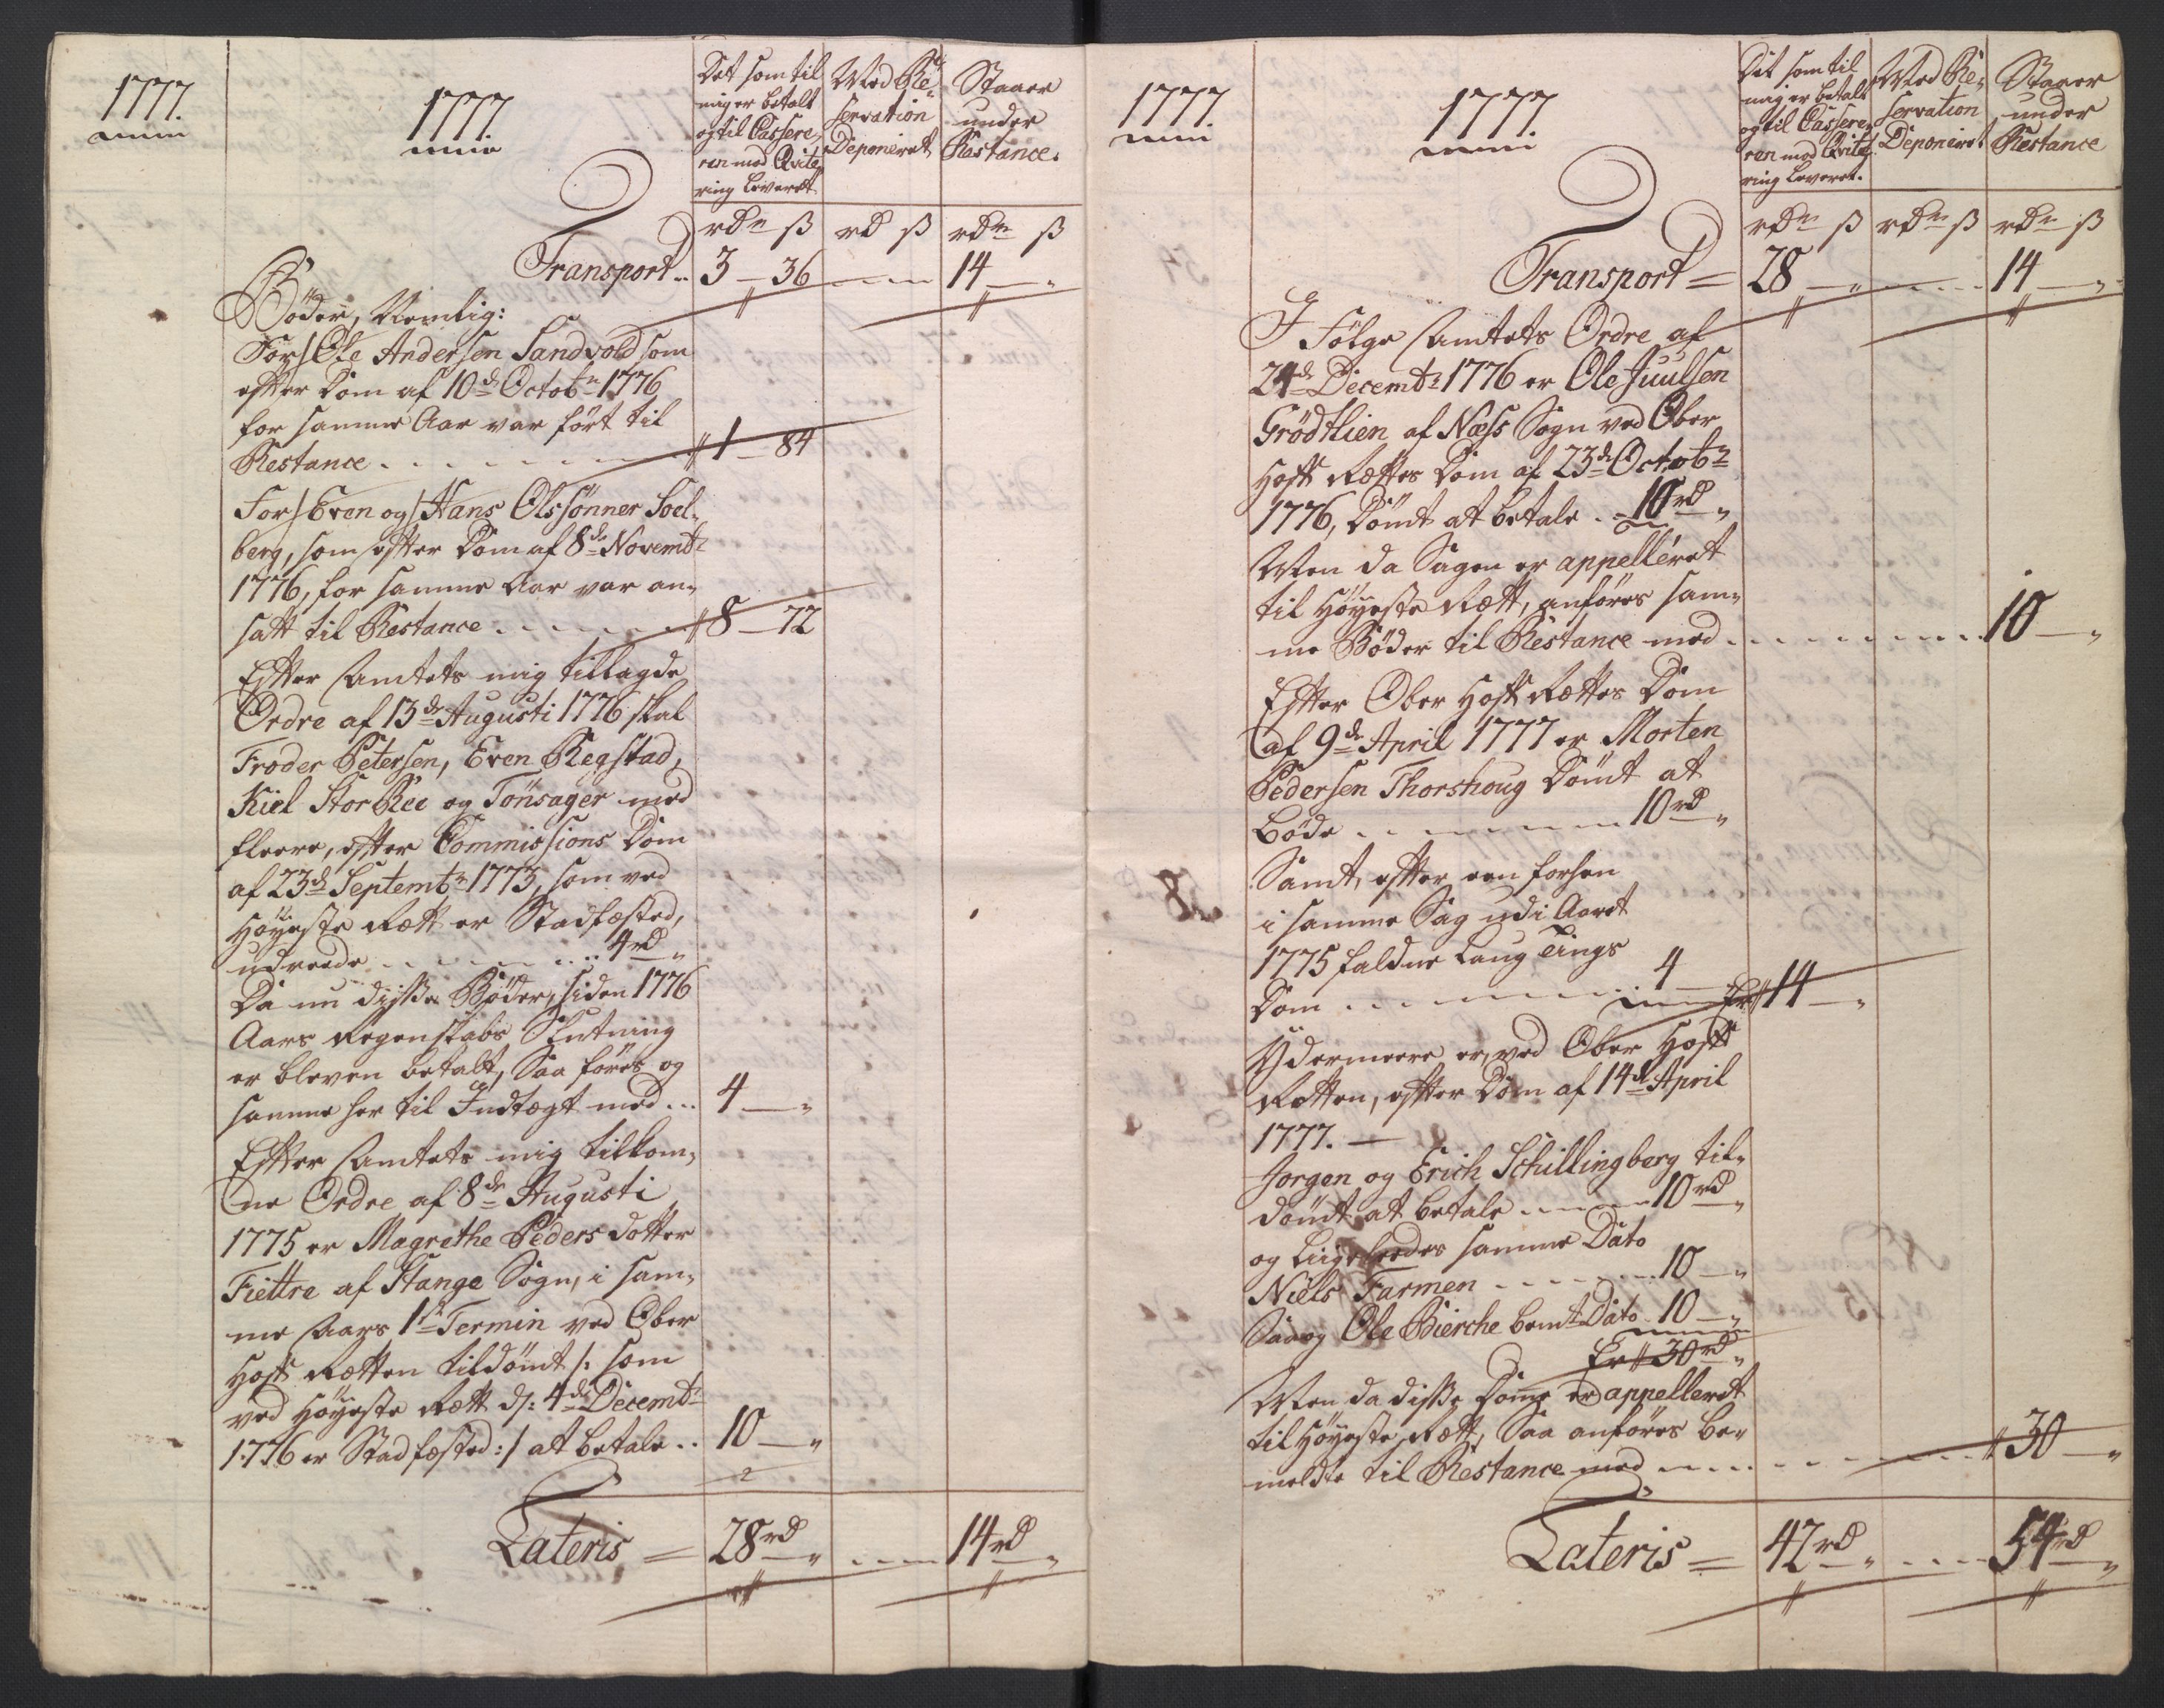 1777.
1777.
Det som til
mig er betalt
og til Cassere-
ren mod Qvite-
ring leveret
Med Re-
servation
Deponeret
Staaer
under
Restance.
rdr ß rd ß rdr ß
Transport.. 3 — 36 14 — „
Böder, Nemlig:
For Ole Andersen Sandvold som
efter Dom af 10de Octobr 1776
for samme Aar var ført til
Restance . . . . . . . 1 — 84
For Even og Hans Olssønner Soel-
berg, som efter Dom af 8de Novembr
1776, for samme Aar var an-
satt til Restance . . . . . . 8 — 72
Efter Amtets mig tillagde
Ordre af 13de Augusti 1776 skal
Froder Petersen, Even Regstad,
Kiel StorRee og Tönsager med
fleere, efter Commissions Dom
af 23de Septembr 1773, som ved
Høyeste Rett er Stadfæsted,
udreede . . . . . . 4rd „
Da nu disse Bøder, siden 1776
Aars Regenskabs Slutning
er bleven betalt, Saa føres og
samme her til Indtægt med ... 4 — „
Efter Amtets mig tilkom-
ne Ordre af 8de Augusti
1775 er Magrethe Peders dotter
Fiettre af Stange Sogn, i sam-
me Aars 1ste Termin ved Ober
Hoff Retten tildømt /: som
ved Høyeste Rett d: 4de Decembr
1776 er Stadfæsted :/ at betale .. 10 — „
Lateris = 28rd „ 14rd „
1777.
1777.
Det som til
mig er betalt
og til Cassere-
ren mod Qvite-
ring leveret.
Med Re-
servation
Deponeret
Staaer
under
Restance
rdr ß rdr ß rdr ß
Transport = 28 — „ 14 — „
I Følge Amtets Ordre af
24de Decembr 1776 er Ole Juulsen
Grödtlien af Næss Sogn ved Ober
Hoff Rettes Dom af 23de Octobr
1776, Dømt at betale . . 10rd „
Men da Sagen er appelléret
til Høyeste Rett, anføres sam-
me Bøder til Restance med . . . . . . 10 — „
Efter Ober Hoff Rettes Dom
af 9de April 1777 er Morten
Pedersen Thorshoug Dømt at
bøde . . . . . . 10rd „
Samt, efter een forhen
i samme Sag udi Aaret
1775 faldne Laug Tings
Dom . . . . . . 4 — Er 14 — „
Ydermeere er, ved Ober Hoff
Retten, efter Dom af 14de April
1777. —
Jorgen og Erich Schillingberg til-
dømt at betale . . . . 10rd „
og liigeledes samme Dato
Niels Farmen . . . . . . 10 — „
Saa og Ole Bierche bemte Dato 10 — „
Er 30rd „
Men da disse Domme er appelleret
til Høyeste Rett, Saa anføres be-
meldte til Restance med . . . . . . 30 — „
Lateris = 42rd „ 54rd „